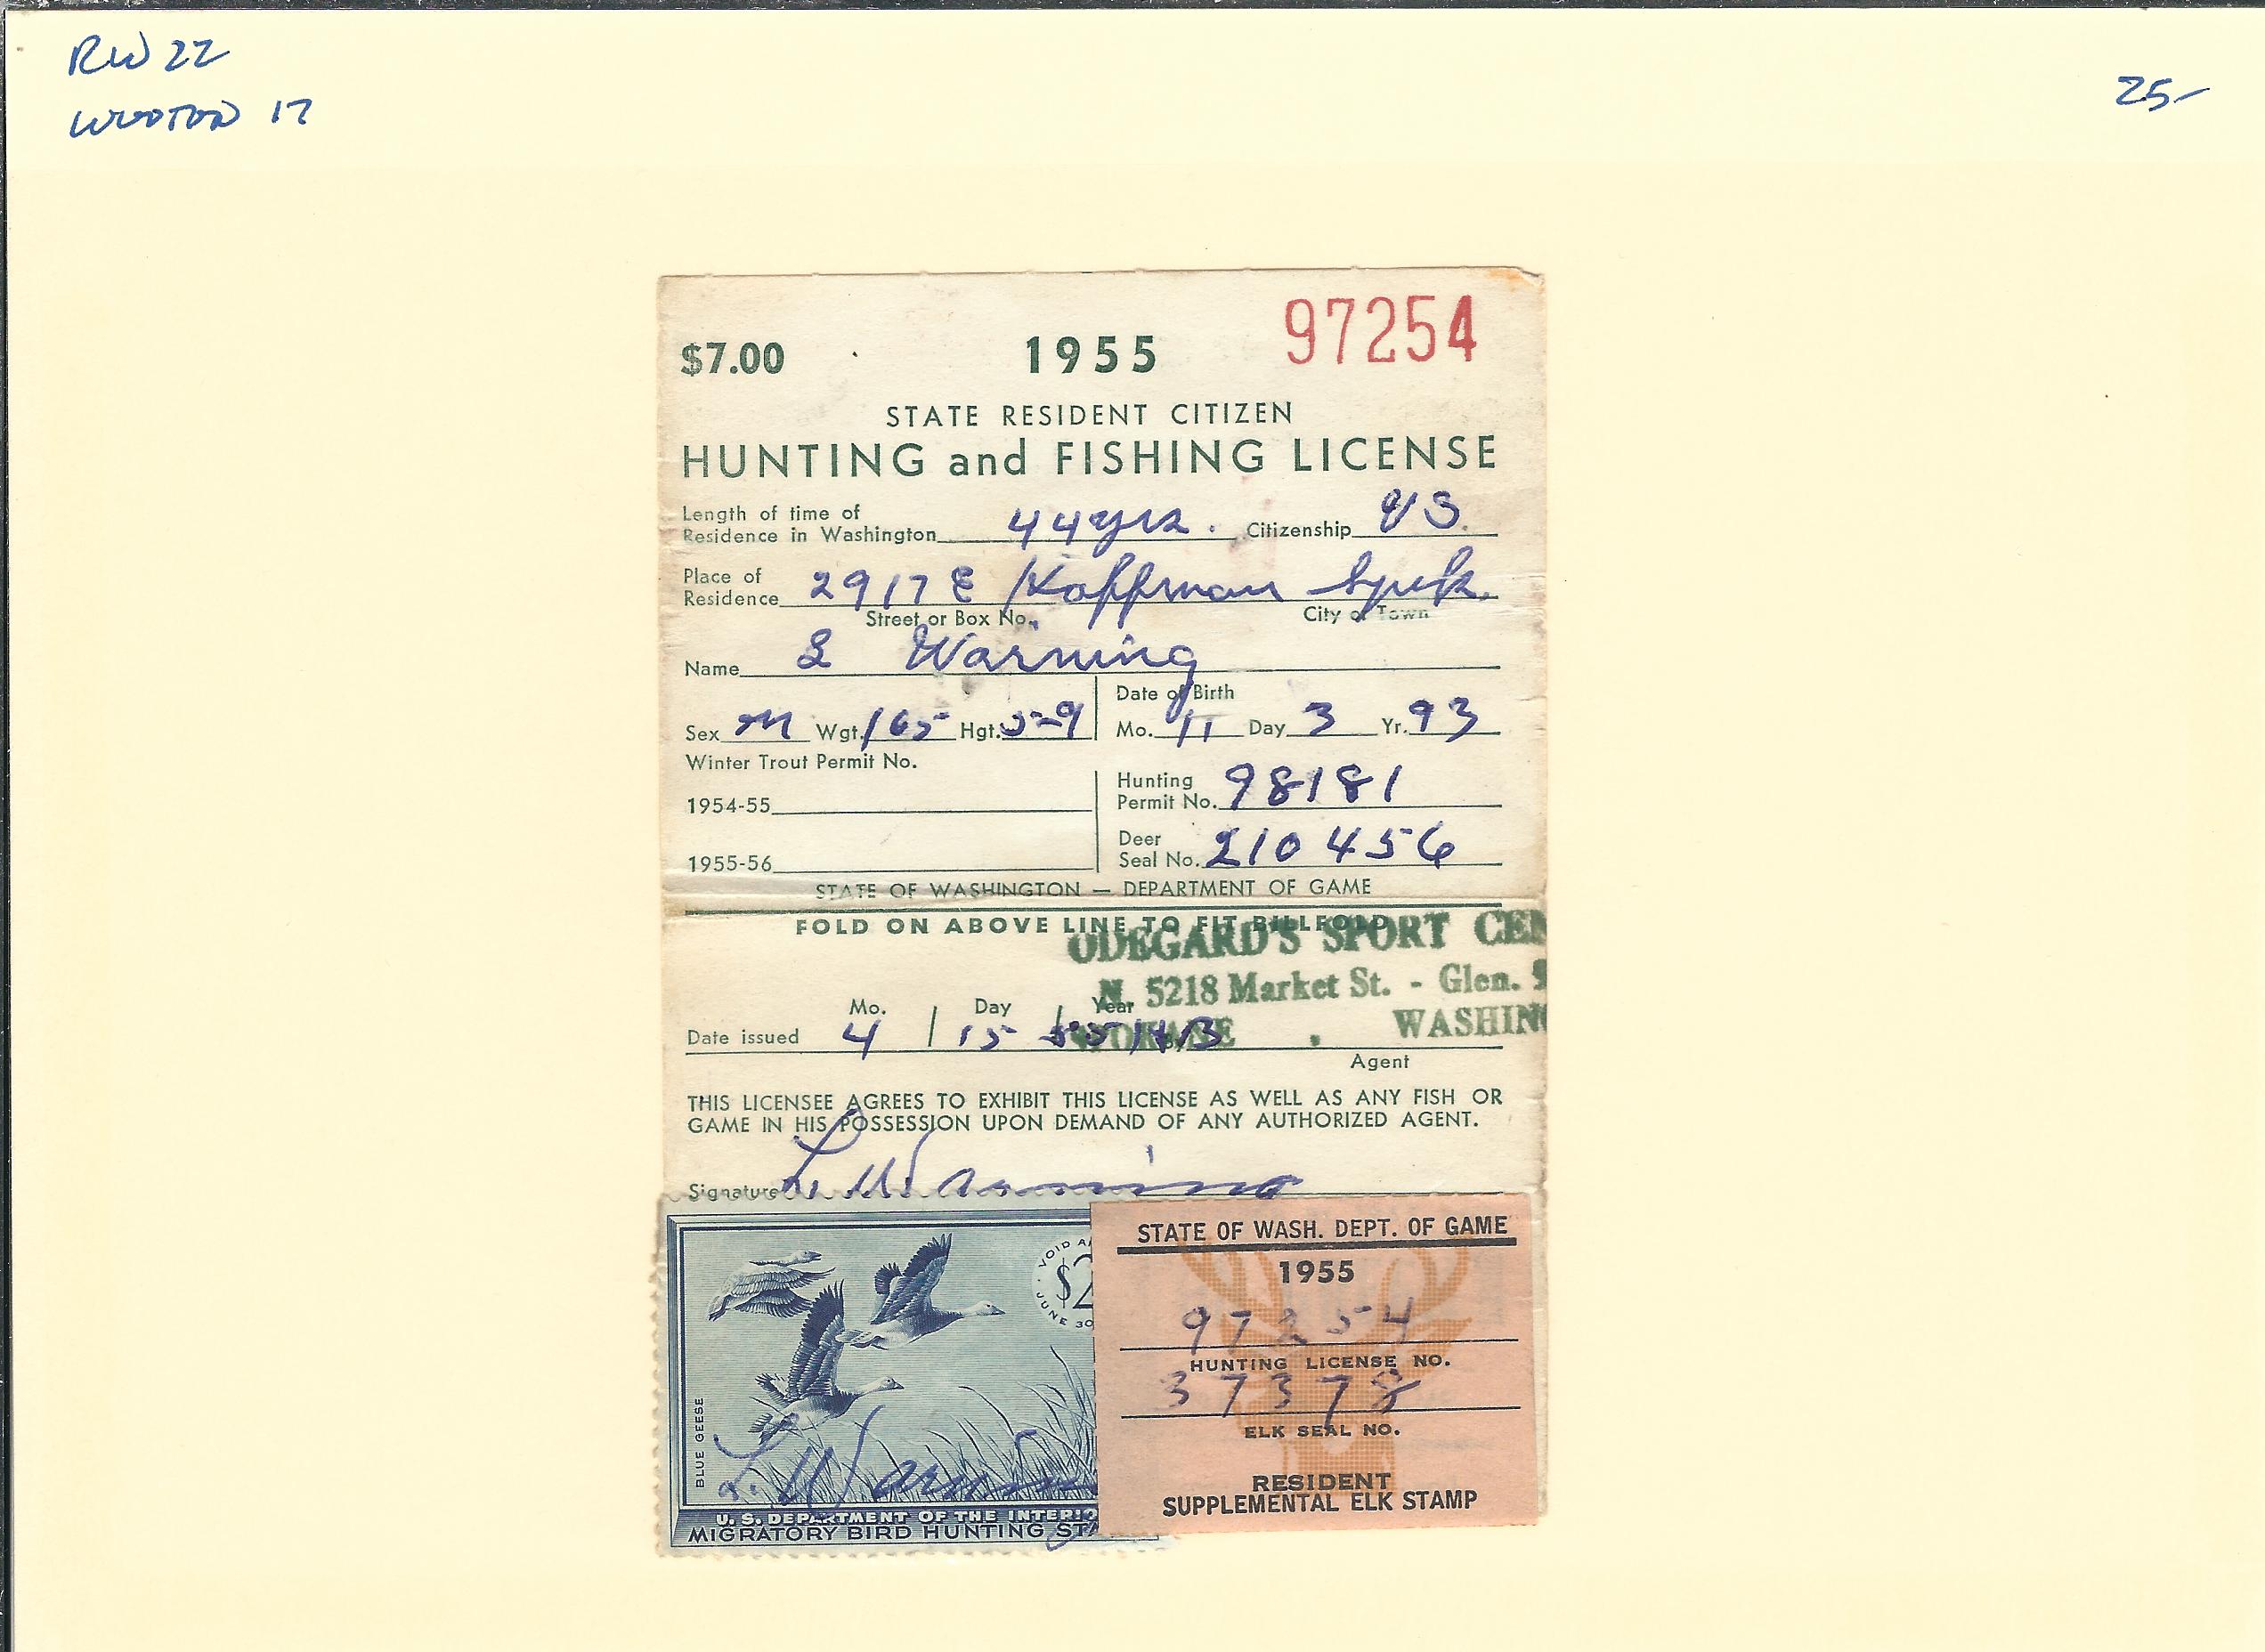 RW 22
25-
WOOTON 17
97254
$7.00 1955
STATE RESIDENT CITIZEN
HUNTING and FISHING LICENSE
Length of time of
Residence in Washington 44 yrs. Citizenship US
Place of
Residence 2917 E Hoffman Spok.
Street or Box No. City or Town
Name L Warning
Date of Birth
Sex M Wgt. 165 Hgt. 5-9 Mo. 11 Day 3 Yr. 93
Winter Trout Permit No.
Hunting
Permit No. 98181
1954-55
Deer
Seal No. 210456
1955-56
STATE OF WASHINGTON — DEPARTMENT OF GAME
FOLD ON ABOVE LINE TO FIT BILLFOLD
ODEGARD'S SPORT CEN
N. 5218 Market St. - Glen.
Mo. Day Year
SPOKANE, WASHING
Date issued 4 / 15 / 55
Agent
THIS LICENSEE AGREES TO EXHIBIT THIS LICENSE AS WELL AS ANY FISH OR
GAME IN HIS POSSESSION UPON DEMAND OF ANY AUTHORIZED AGENT.
Signature L. Warning
VOID A
$2
JUNE 30
BLUE GEESE
L. Warnin
U. S. DEPARTMENT OF THE INTERIO
MIGRATORY BIRD HUNTING STA
STATE OF WASH. DEPT. OF GAME
1955
97254
HUNTING LICENSE NO.
37378
ELK SEAL NO.
RESIDENT
SUPPLEMENTAL ELK STAMP